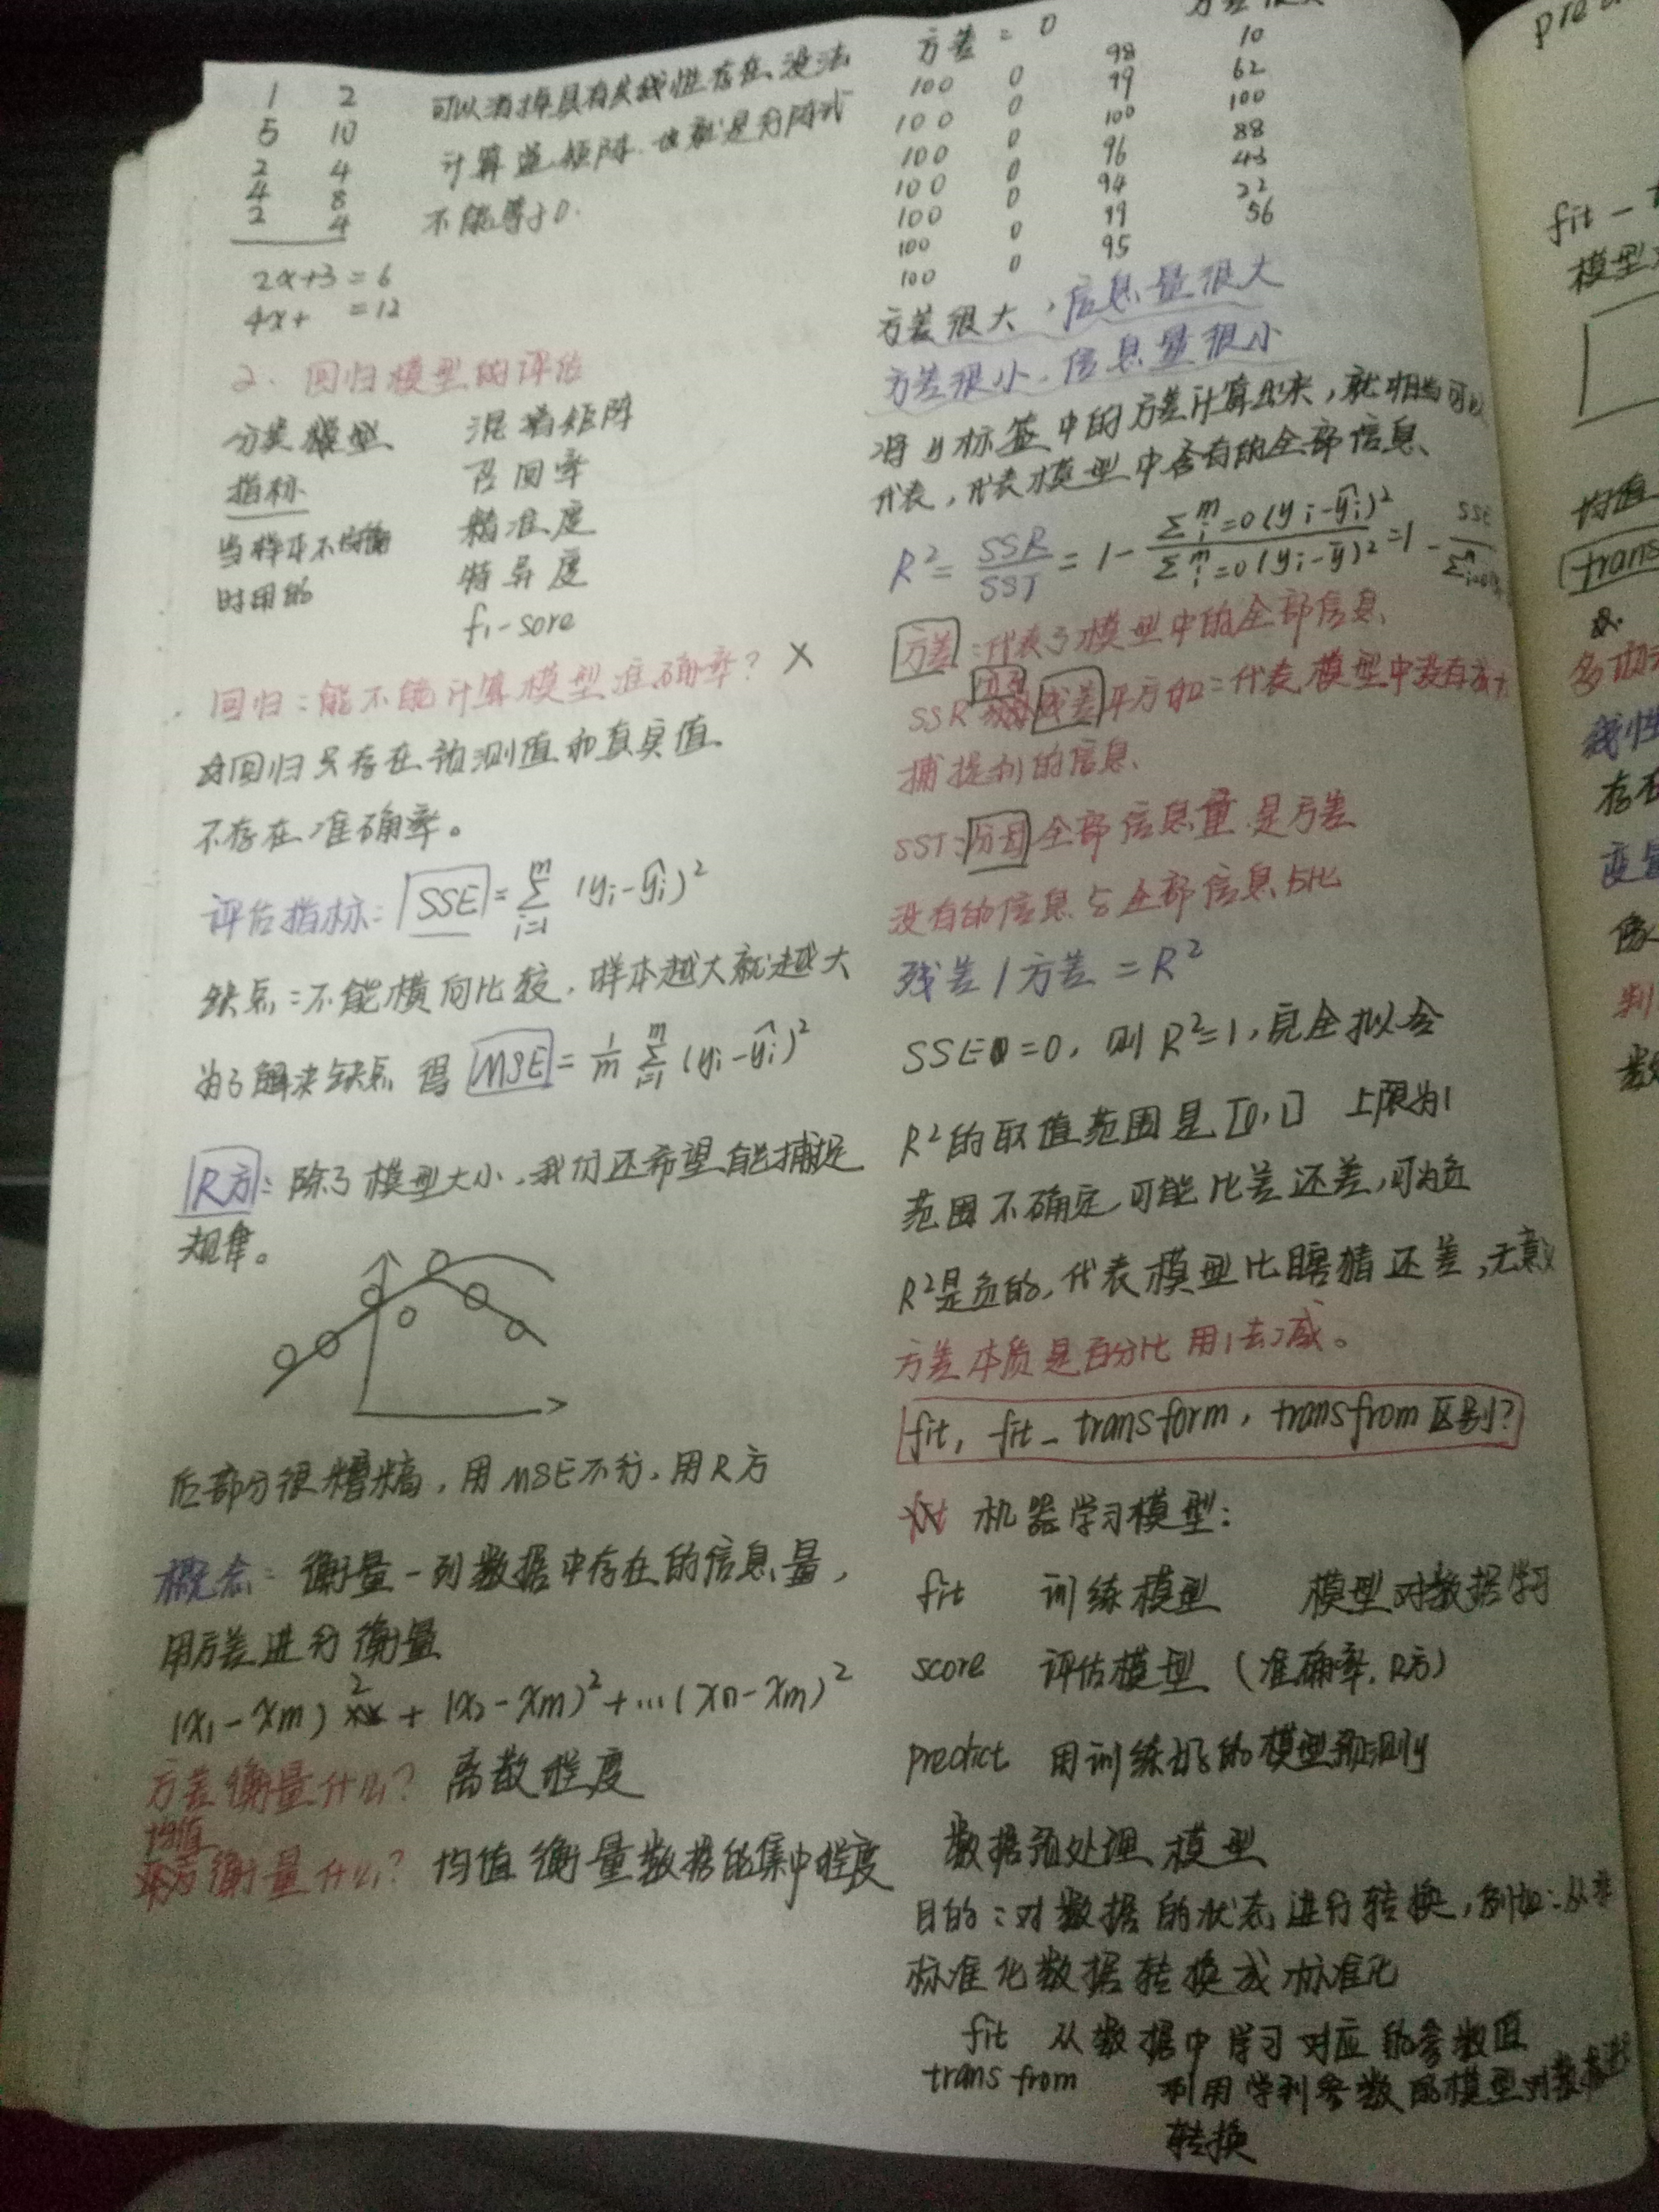 1 2 可以消掉具有共线性存在、没法
5 10 计算逆矩阵. 也就是行阵式
2 4
4 8 不能等于0.
2 4
2x+3=6
4x+ =12
2. 回归模型的评估
分类模型 混淆矩阵
指标 召回率
当样本不均衡 精准度
时用的 特异度
f1-sore
回归: 能不能计算模型准确率? ×
回归只存在预测值和真实值
不存在准确率。
评估指标: SSE = ∑_{i=1}^{m} (yi-ŷi)²
缺点: 不能横向比较, 样本越大就越大
为了解决缺点 得 MSE = 1/m ∑_{i=1}^{m} (yi-ŷi)²
R方: 除了模型大小、我们还希望能捕捉
规律。
后部分很糟糕, 用MSE不行, 用R方
概念: 衡量一列数据中存在的信息量,
用方差进行衡量
(x1-xm)² + (x2-xm)² + ...(xn-xm)²
方差衡量什么? 离散程度
均值
衡量什么? 均值衡量数据的集中程度
方差 = 0
100 0 98 10
100 0 99 62
100 0 100 100
100 0 96 88
100 0 94 43
100 0 99 22
100 0 95 56
方差很大, 信息量很大
方差很小、信息量很小
将y标签中的方差计算出来, 就相当可以
代表, 代表模型中含有的全部信息、
R² = SSR/SST = 1 - ∑_i^m=0(yi-ŷi)² / ∑_i^m=0(yi-ȳ)² = 1 - SSE
方差: 代表了模型中的全部信息、
SSR 残差平方和: 代表模型中没有
捕捉到的信息、
SST: 分母 全部信息量 是方差
没有的信息与全部信息占比
残差/方差 = R²
SSE=0, 则R²=1, 完全拟合
R²的取值范围是[0,1] 上限为1
范围不确定, 可能比差还差, 可为负
R²是负的, 代表模型比瞎猜还差, 无意义
方差本质是百分比 用1去减。
fit, fit_transform, transfrom区别?
机器学习模型:
fit 训练模型 模型对数据学习
score 评估模型 (准确率, R方)
predict 用训练好的模型预测y
数据预处理模型
目的: 对数据的状态进行转换, 例如: 从非
标准化数据转换成标准化
fit 从数据中学习对应的参数值
transfrom 利用学到参数的模型对数据进行
转换
fit -
模型
均值
trans
线性
存在
变量